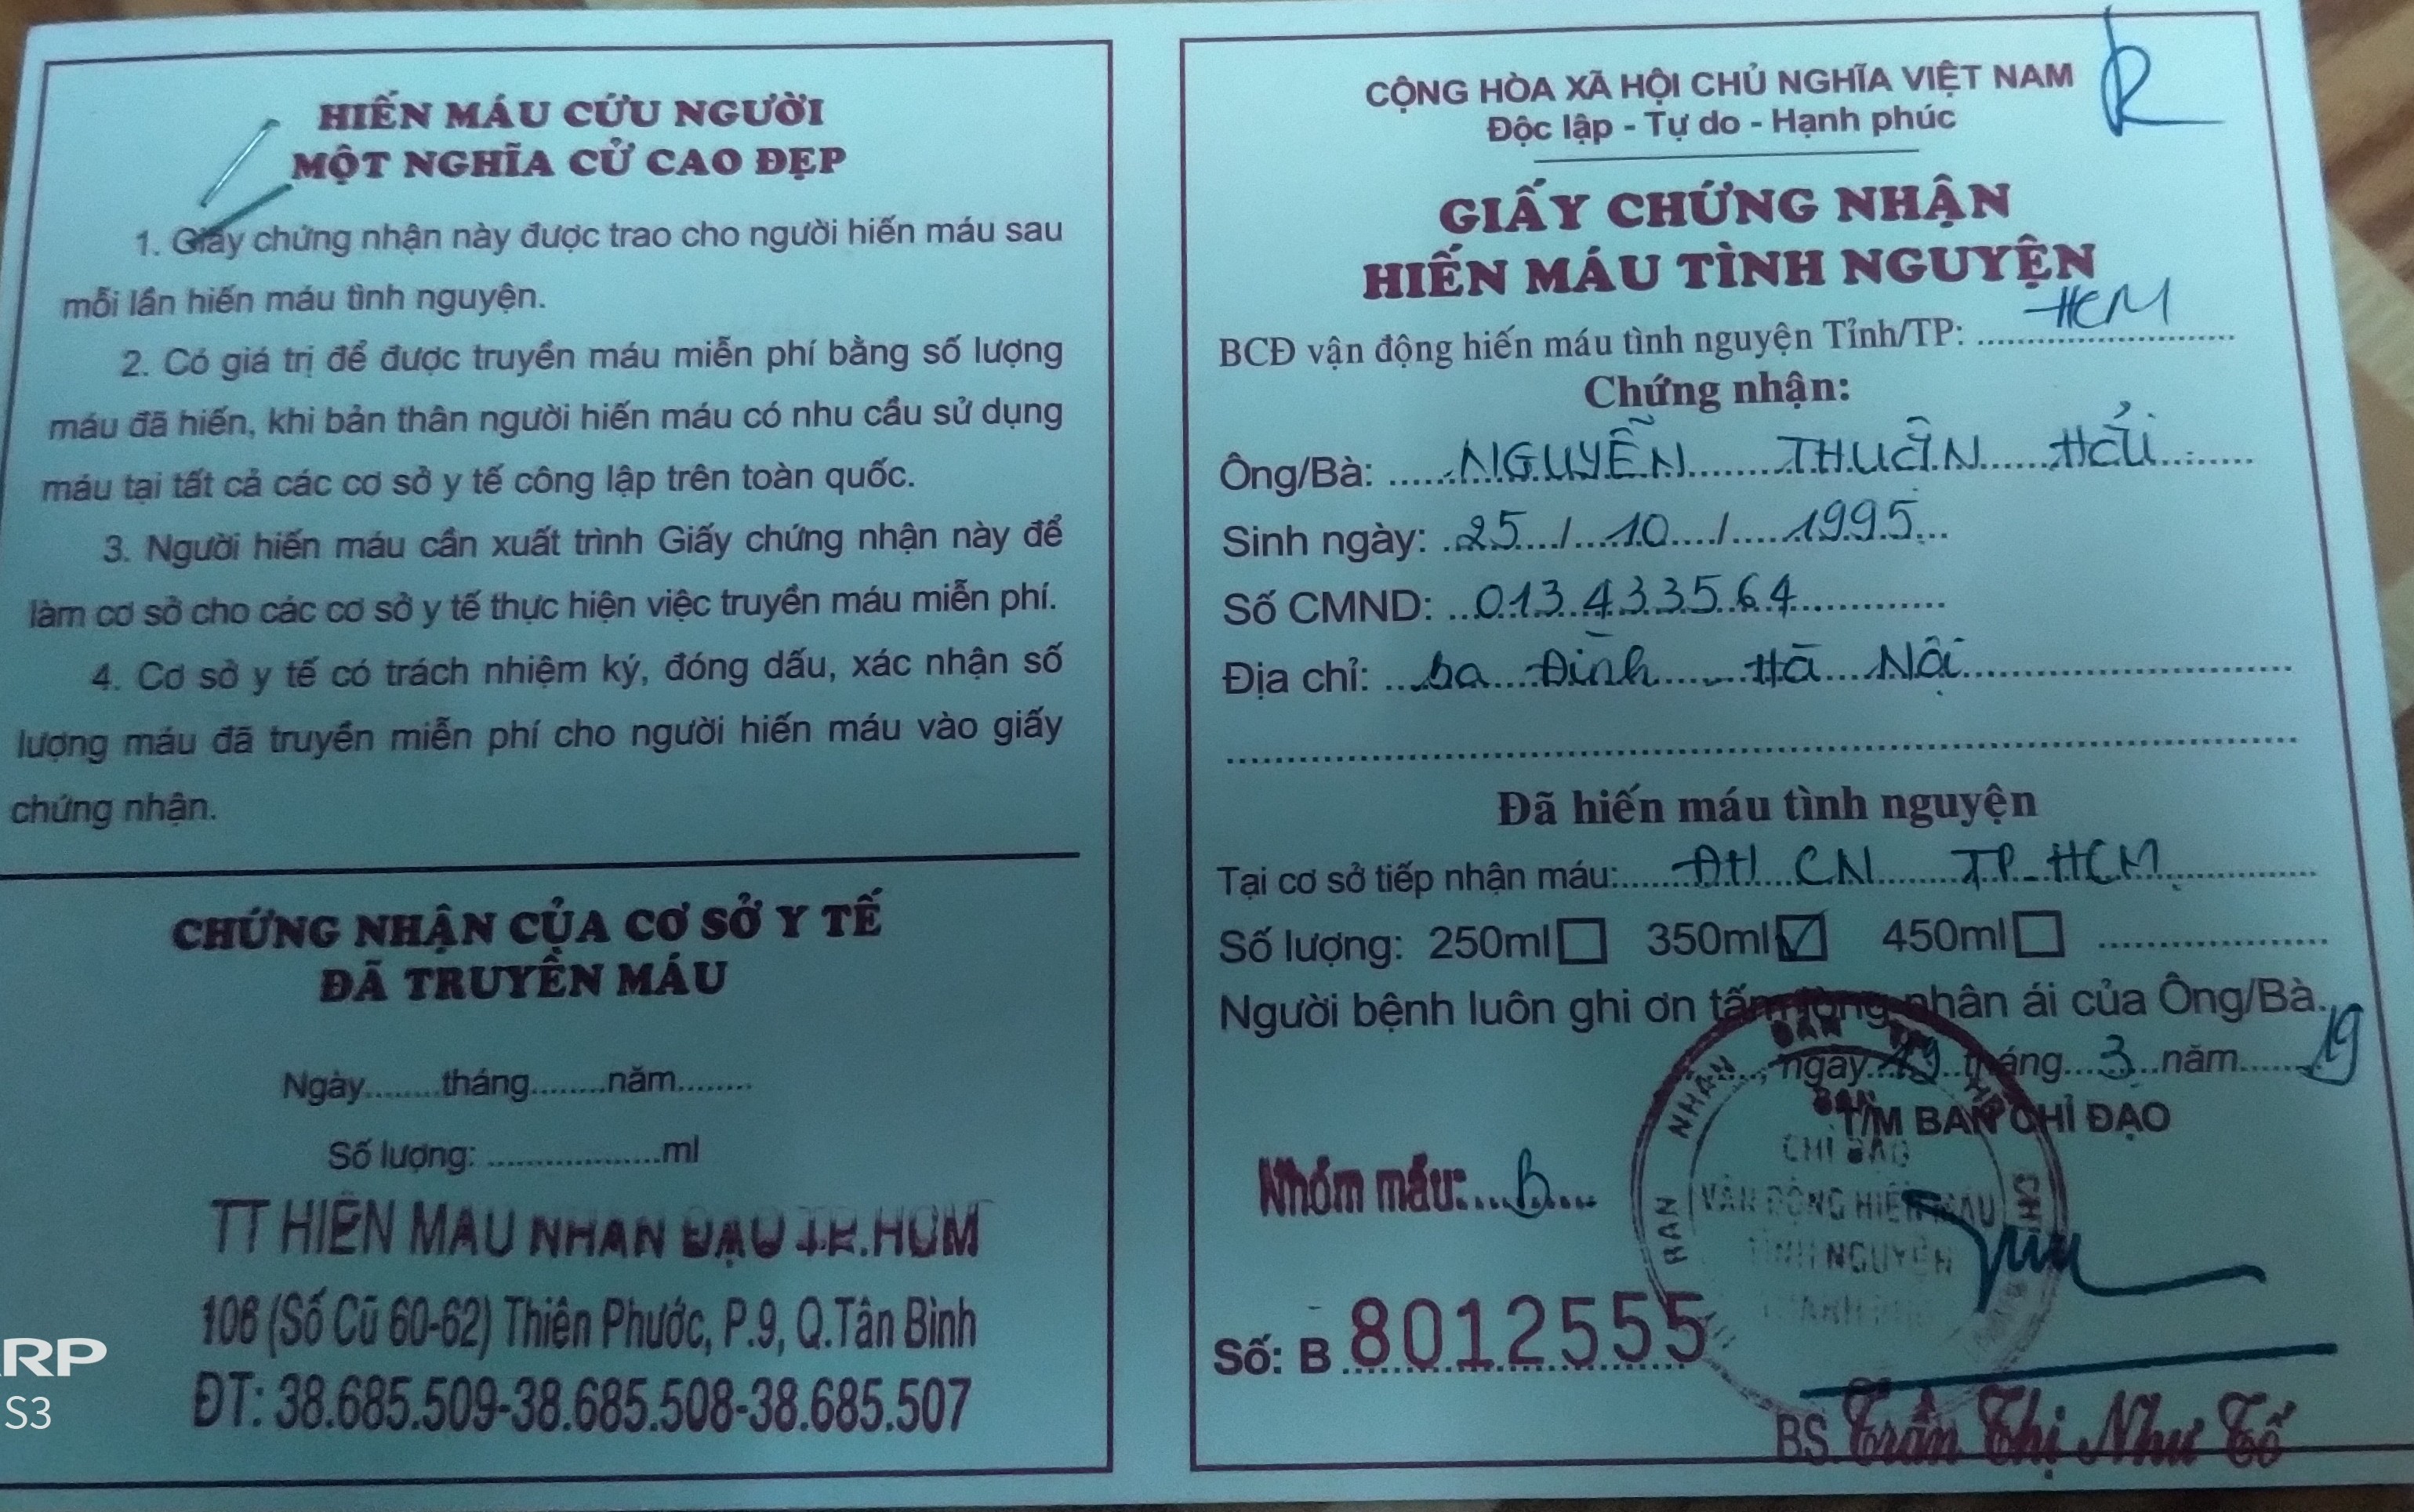 HIẾN MÁU CỨU NGƯỜI
MỘT NGHĨA CỬ CAO ĐẸP
1. Giấy chứng nhận này được trao cho người hiến máu sau
mỗi lần hiến máu tình nguyện.
2. Có giá trị để được truyền máu miễn phí bằng số lượng
máu đã hiến, khi bản thân người hiến máu có nhu cầu sử dụng
máu tại tất cả các cơ sở y tế công lập trên toàn quốc.
3. Người hiến máu cần xuất trình Giấy chứng nhận này để
làm cơ sở cho các cơ sở y tế thực hiện việc truyền máu miễn phí.
4. Cơ sở y tế có trách nhiệm ký, đóng dấu, xác nhận số
lượng máu đã truyền miễn phí cho người hiến máu vào giấy
chứng nhận.
CHỨNG NHẬN CỦA CƠ SỞ Y TẾ
ĐÃ TRUYỀN MÁU
Ngày........tháng........năm........
Số lượng: ..................ml
TT HIẾN MÁU NHÂN ĐẠO TP.HCM
106 (Số Cũ 60-62) Thiên Phước, P.9, Q.Tân Bình
ĐT: 38.685.509-38.685.508-38.685.507
RP
S3
CỘNG HÒA XÃ HỘI CHỦ NGHĨA VIỆT NAM
Độc lập - Tự do - Hạnh phúc
GIẤY CHỨNG NHẬN
HIẾN MÁU TÌNH NGUYỆN
BCĐ vận động hiến máu tình nguyện Tỉnh/TP: HCM
Chứng nhận:
Ông/Bà: NGUYỄN THUẬN HẢI
Sinh ngày: 25 / 10 / 1995
Số CMND: 013433564
Địa chỉ: Ba Đình - Hà Nội
Đã hiến máu tình nguyện
Tại cơ sở tiếp nhận máu: ĐH CN TP-HCM
Số lượng: 250ml☐ 350ml☑ 450ml☐
Người bệnh luôn ghi ơn tấm lòng nhân ái của Ông/Bà.
, ngày 19 tháng 3 năm 19
T/M BAN CHỈ ĐẠO
BAN
CHỈ ĐẠO
VẬN ĐỘNG HIẾN MÁU
TÌNH NGUYỆN
Nhóm máu: B
Số: B 8012555
BS. Trần Thị Như Tố